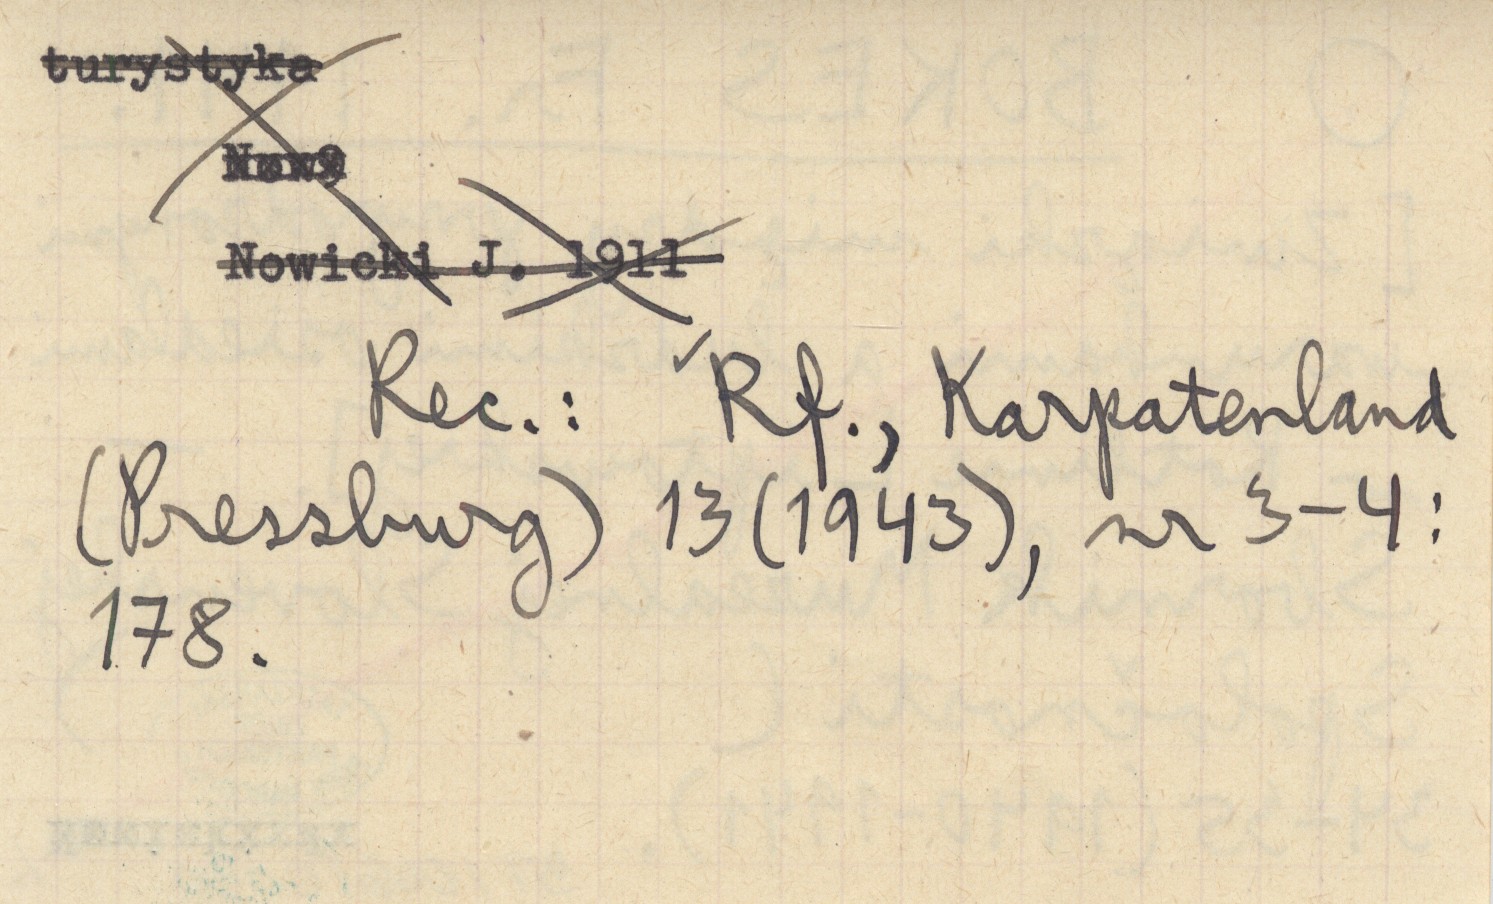 turystyka
Nowicki J. 1911
Rec.: ✓Rf., Karpatenland
(Pressburg) 13(1943), nr 3-4:
178.